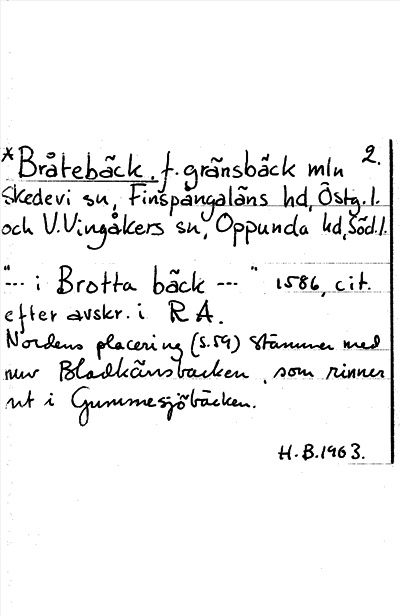 *Bråtebäck. f. gränsbäck mln 2.
Skedevi sn, Finspångaläns hd, Östg. l.
och V. Vingåkers sn, Oppunda hd, Söd. l.
"--- i Brotta bäck --- " 1586, cit.
efter avskr. i RA.
Nordens placering (s.59) stämmer med
nuv Bladkärrsbacken, som rinner
ut i Gummesjöbäcken.
H.B. 1963.